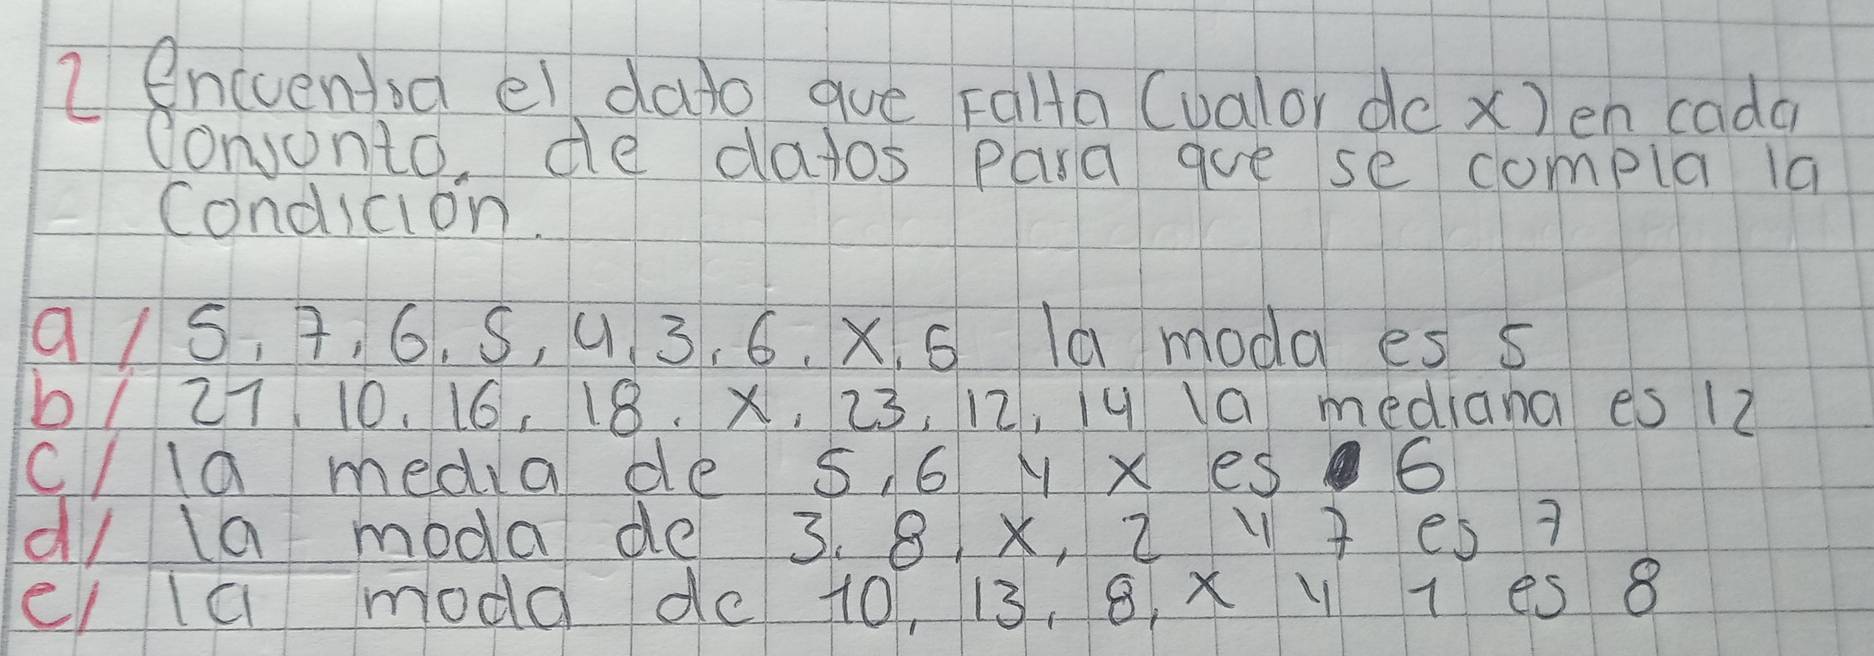 2 Encuentra el dato que Falta (valor de x) en cada
Conjunto. de datos para que se compla la
Condición.
a/ 5, 7, 6, 5, 4, 3, 6, X, 5 la moda es 5
b/ 21, 10, 16, 18, x, 23, 12, 14 la mediana es 12
c/ la media de 5, 6 y x es 6
d/ la moda de 3, 8, x, 2 y 7 es 7
e/ la moda de 10, 13, 8, x y 1 es 8